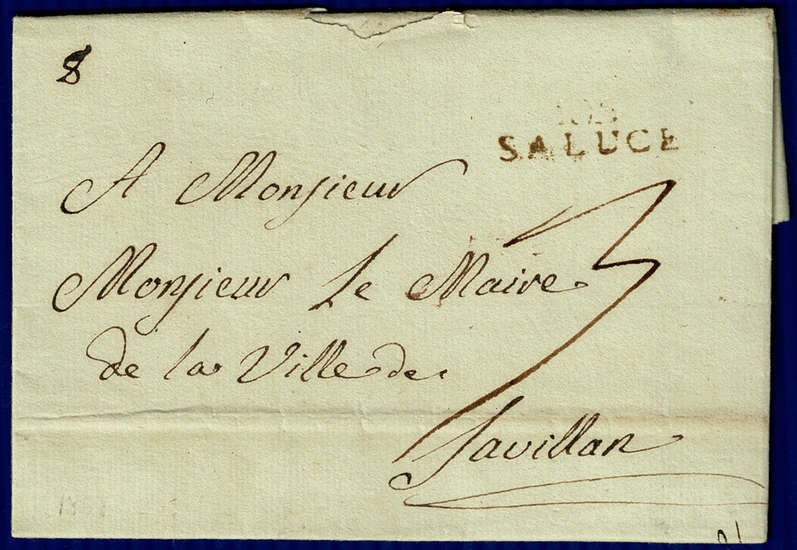 8
SALUCE
A Monsieur
Monsieur Le Maire
de la Ville de
Savillan